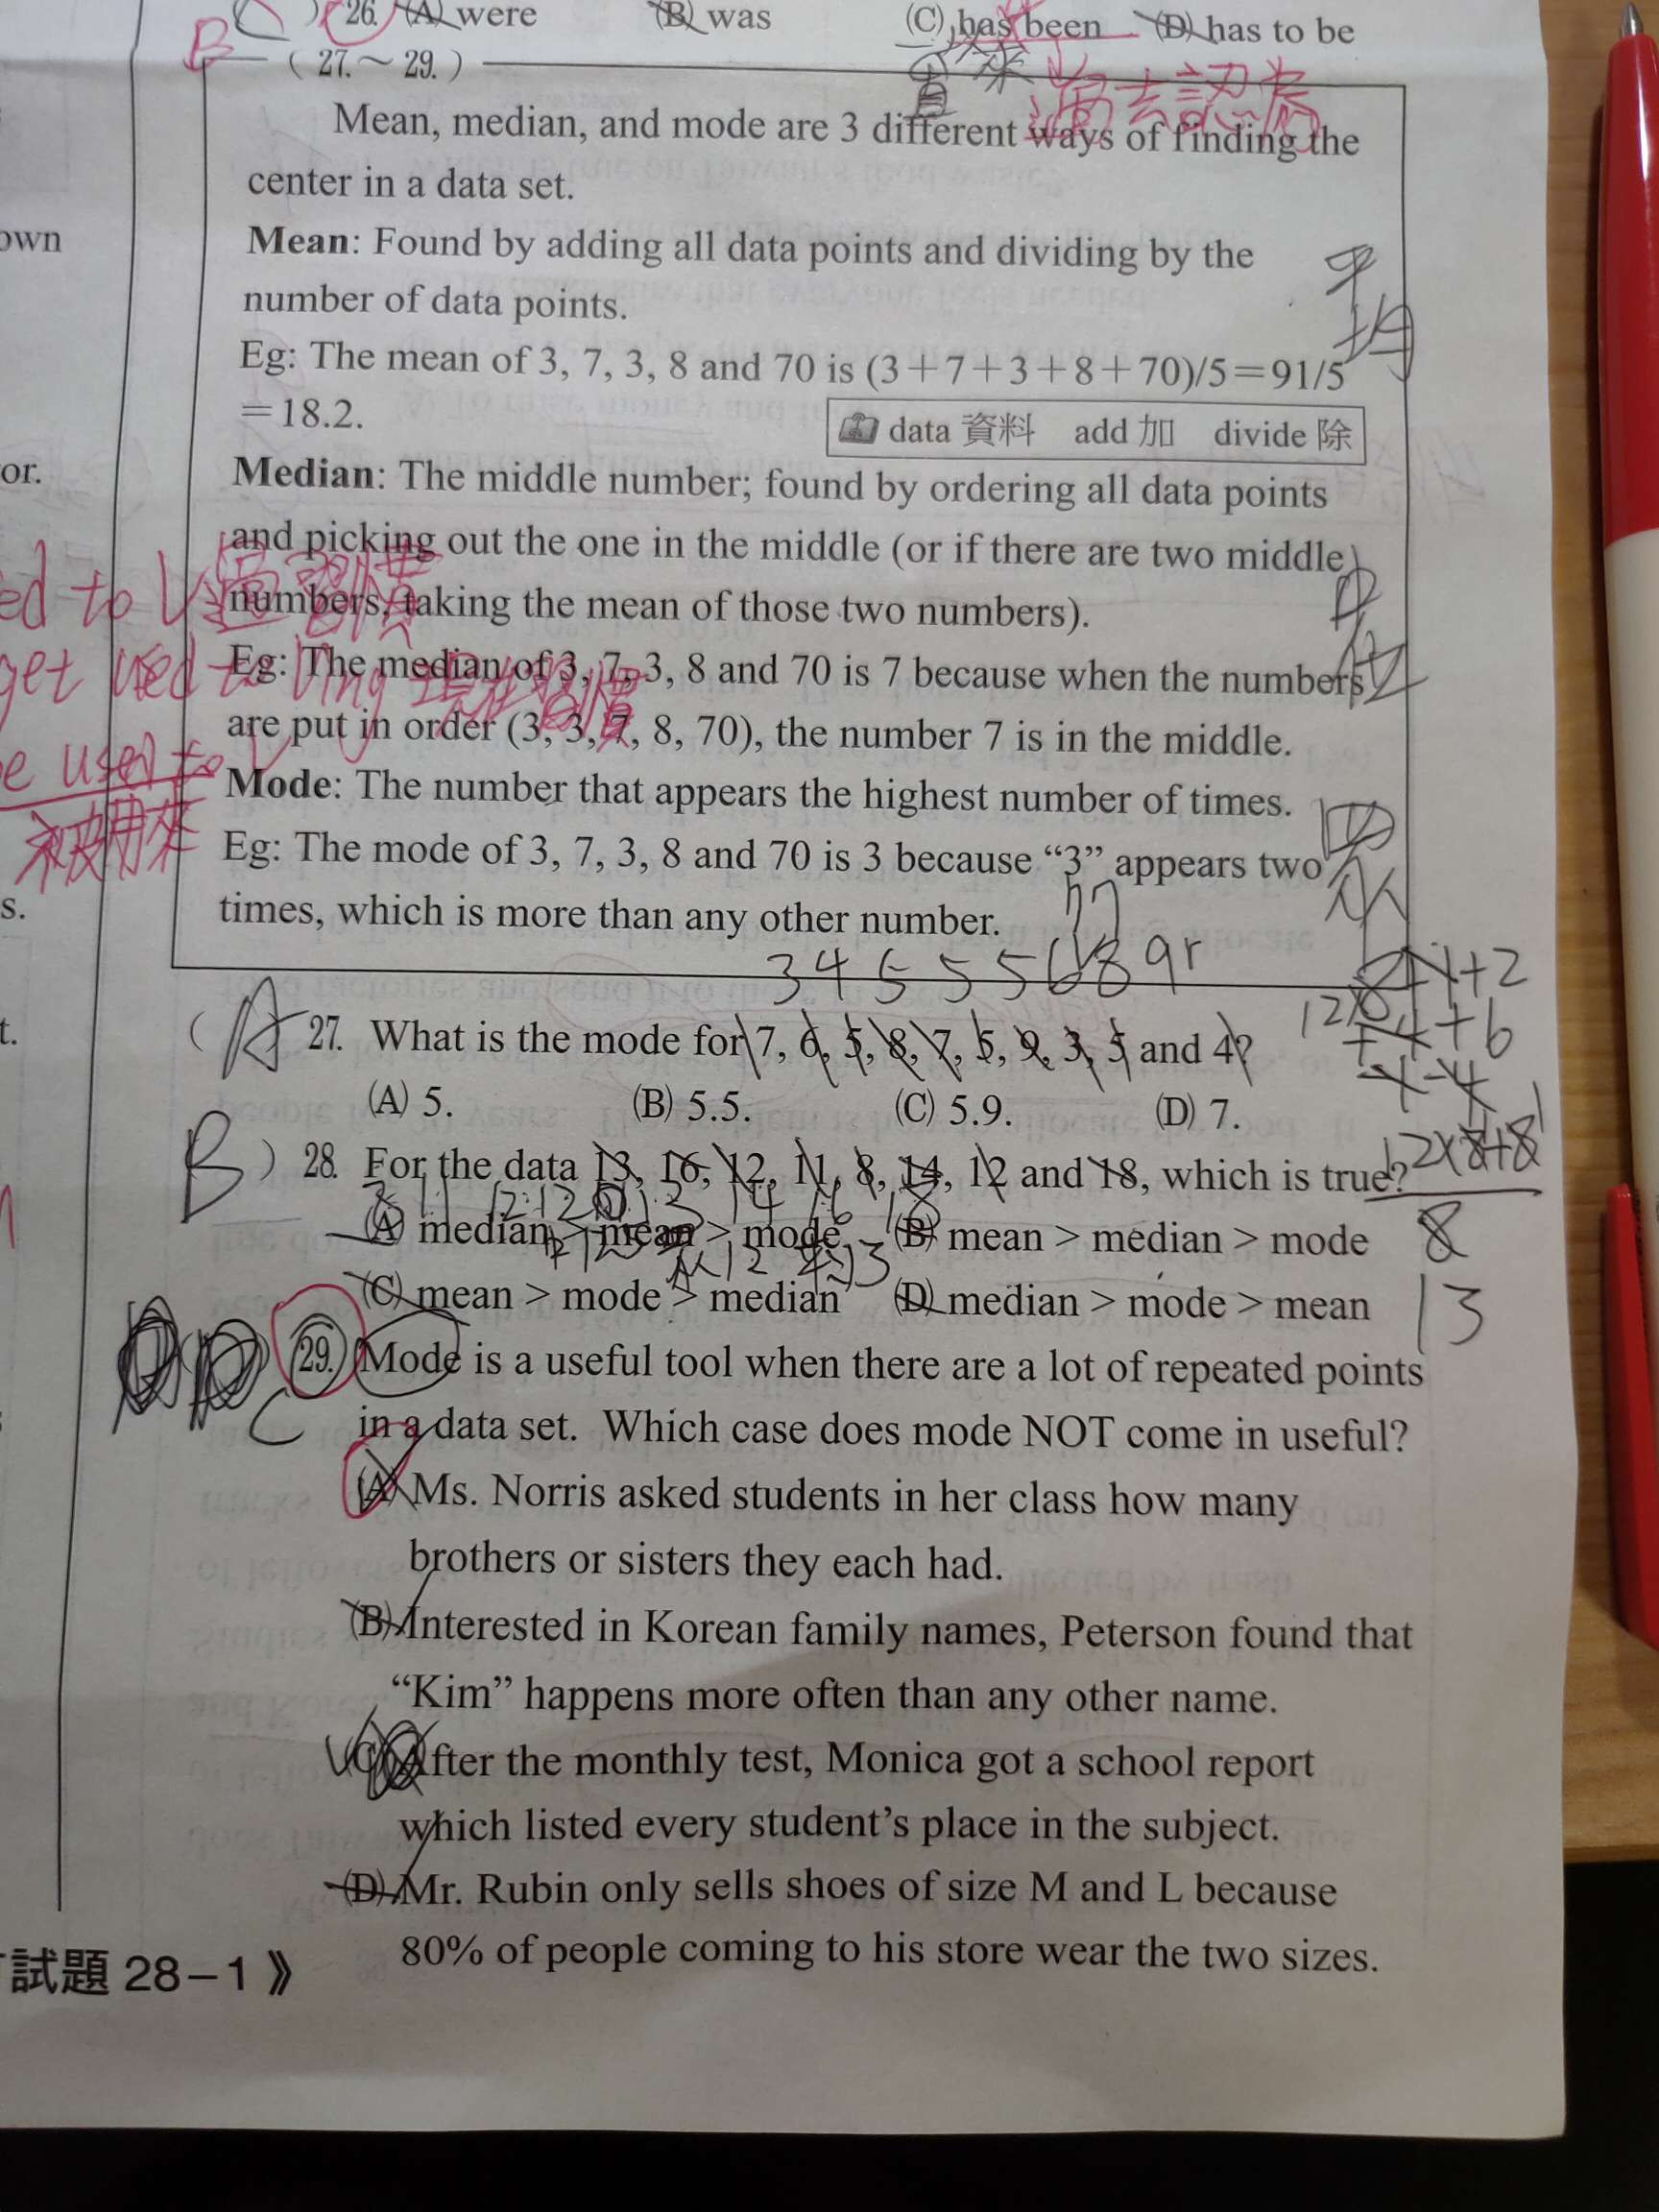 26. (A) were (B) was (C) has been (D) has to be
B
(27.～29.)
過去認為
Mean, median, and mode are 3 different ways of finding the
center in a data set.
own
Mean: Found by adding all data points and dividing by the
number of data points.
平均
Eg: The mean of 3, 7, 3, 8 and 70 is (3＋7＋3＋8＋70)/5＝91/5
＝18.2.
data 資料 add 加 divide 除
or.
Median: The middle number; found by ordering all data points
and picking out the one in the middle (or if there are two middle
numbers, taking the mean of those two numbers).
中位
ed to V
Eg: The median of 3, 7, 3, 8 and 70 is 7 because when the numbers
get used to Ving
are put in order (3, 3, 7, 8, 70), the number 7 is in the middle.
e used to V
被用來
Mode: The number that appears the highest number of times.
Eg: The mode of 3, 7, 3, 8 and 70 is 3 because “3” appears two
times, which is more than any other number.
s.
77
3 4 5 5 5 6 8 9
t.
A
27. What is the mode for 7, 6, 5, 8, 7, 5, 9, 3, 5 and 4?
(A) 5. (B) 5.5. (C) 5.9. (D) 7.
B
28. For the data 13, 16, 12, 11, 8, 14, 12 and 18, which is true?
8 11 12 12 13 14 16 18
(A) median > mean > mode (B) mean > median > mode
(C) mean > mode > median (D) median > mode > mean
12×8+8
8
13
C
29. Mode is a useful tool when there are a lot of repeated points
in a data set. Which case does mode NOT come in useful?
(A) Ms. Norris asked students in her class how many
brothers or sisters they each had.
(B) Interested in Korean family names, Peterson found that
“Kim” happens more often than any other name.
(C) After the monthly test, Monica got a school report
which listed every student’s place in the subject.
(D) Mr. Rubin only sells shoes of size M and L because
80% of people coming to his store wear the two sizes.
試題 28－1 》